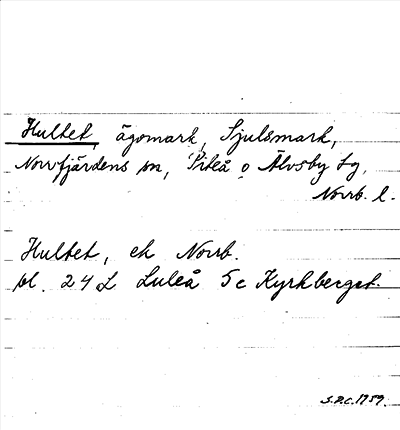 Hultet, ägomark, Sjulsmark,
Norrfjärdens sn, Piteå o Älvsby tg,
Norrb. l.
Hultet, ek Norrb.
bl. 24 L Luleå 5c Kyrkberget.
S.P.C. 1959.